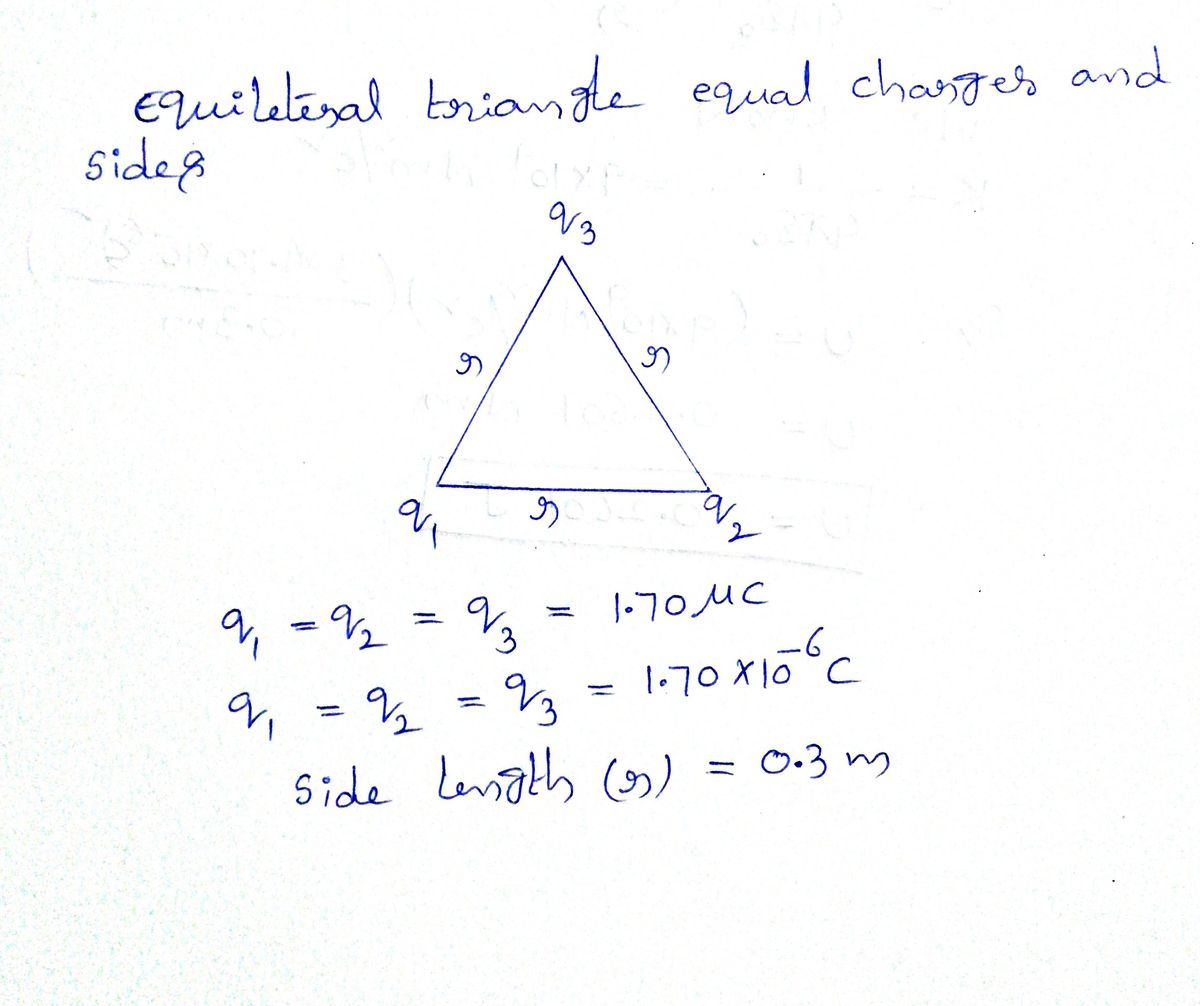 equileteral triangle equal charges and
sides
q3
r r
q1 r q2
q1 = q2 = q3 = 1.70 μC
q1 = q2 = q3 = 1.70 × 10⁻⁶ C
side length (r) = 0.3 m